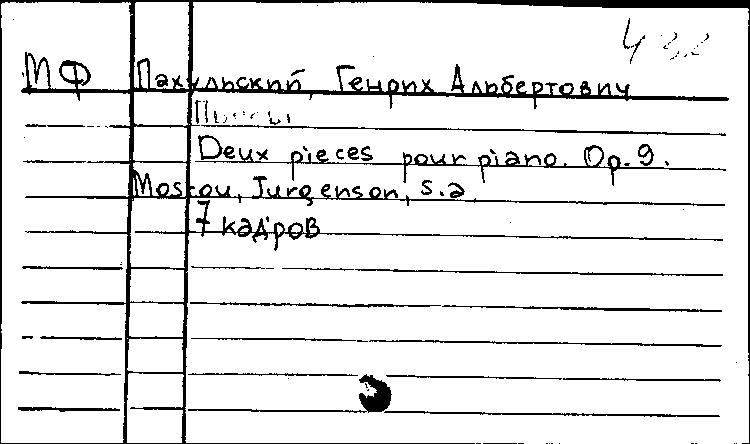 МФ Пахульский, Генрих Альбертович
Deux pieces pour piano. Op. 9.
Moscou, Jurgenson, s.a
7 кадров